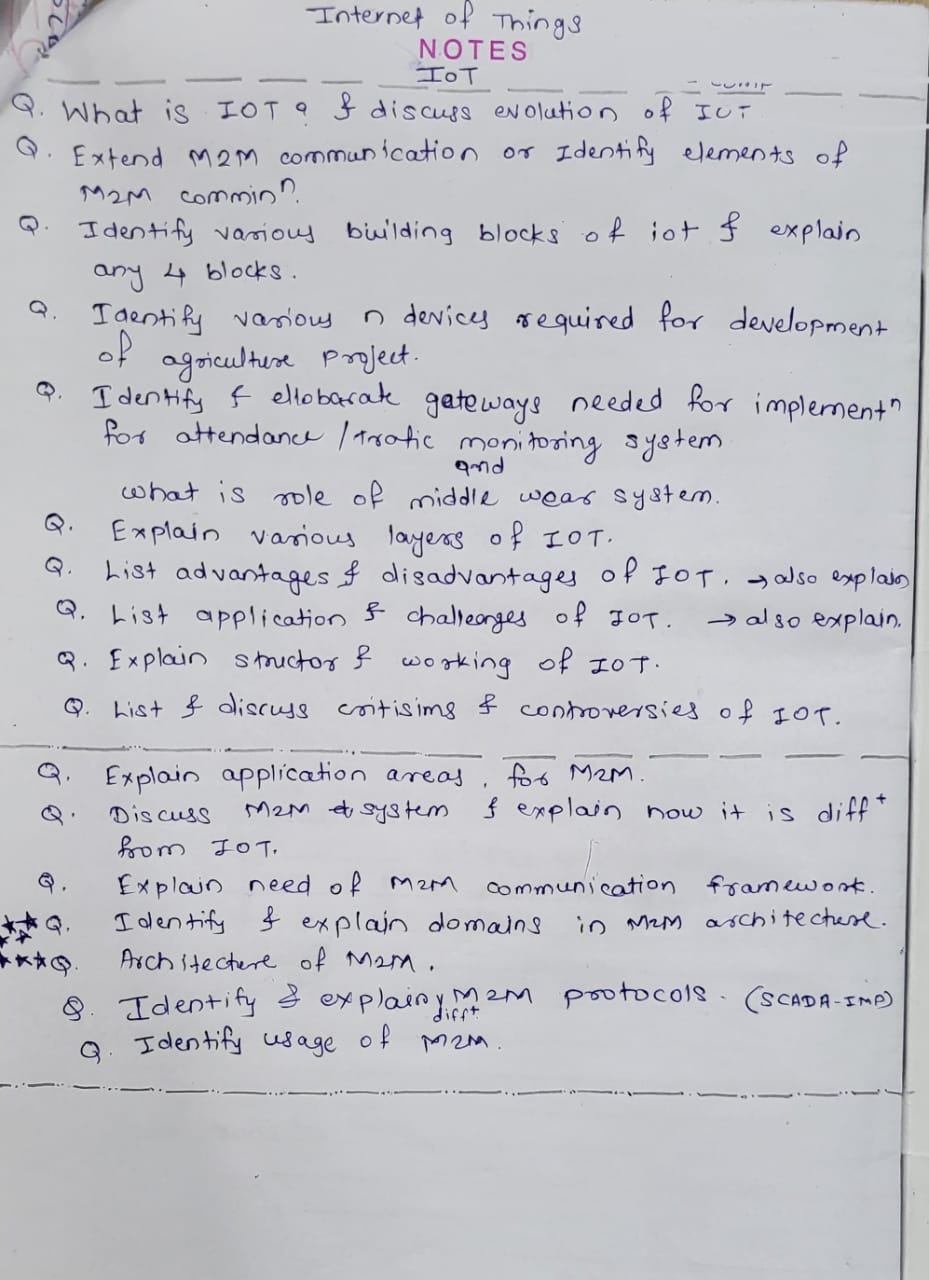 Internet of Things
NOTES
IOT
Q. What is IOT ? & discuss evolution of IOT
Q. Extend M2M communication or Identify elements of
M2M commin^n.
Q. Identify various building blocks of iot & explain
any 4 blocks.
Q. Identify various n devices required for development
of agriculture project.
Q. Identify & ellobarate gateways needed for implement^n
for attendance / trafic monitoring system
and
what is role of middle wear system.
Q. Explain various layers of IOT.
Q. List advantages & disadvantages of IOT. → also explain
Q. List application & challenges of IOT. → also explain.
Q. Explain structor & working of IOT.
Q. List & discuss critisims & controversies of IOT.
Q. Explain application areas, for M2M.
Q. Discuss M2M system & explain how it is diff^t
from IOT.
Q. Explain need of M2M communication framework.
★★★Q. Identify & explain domains in M2M architecture.
★★★Q. Architecture of M2M.
Q. Identify & explain M2M protocols. (SCADA-IMP)
diff^t
Q. Identify usage of M2M.